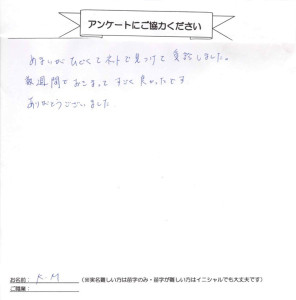 アンケートにご協力ください
めまいがひどくてネットで見つけて受診しました。
数週間でおさまって すごく良かったです
ありがとうございました
お名前: K.M (※実名難しい方は苗字のみ・苗字が難しい方はイニシャルでも大丈夫です)
ご職業: